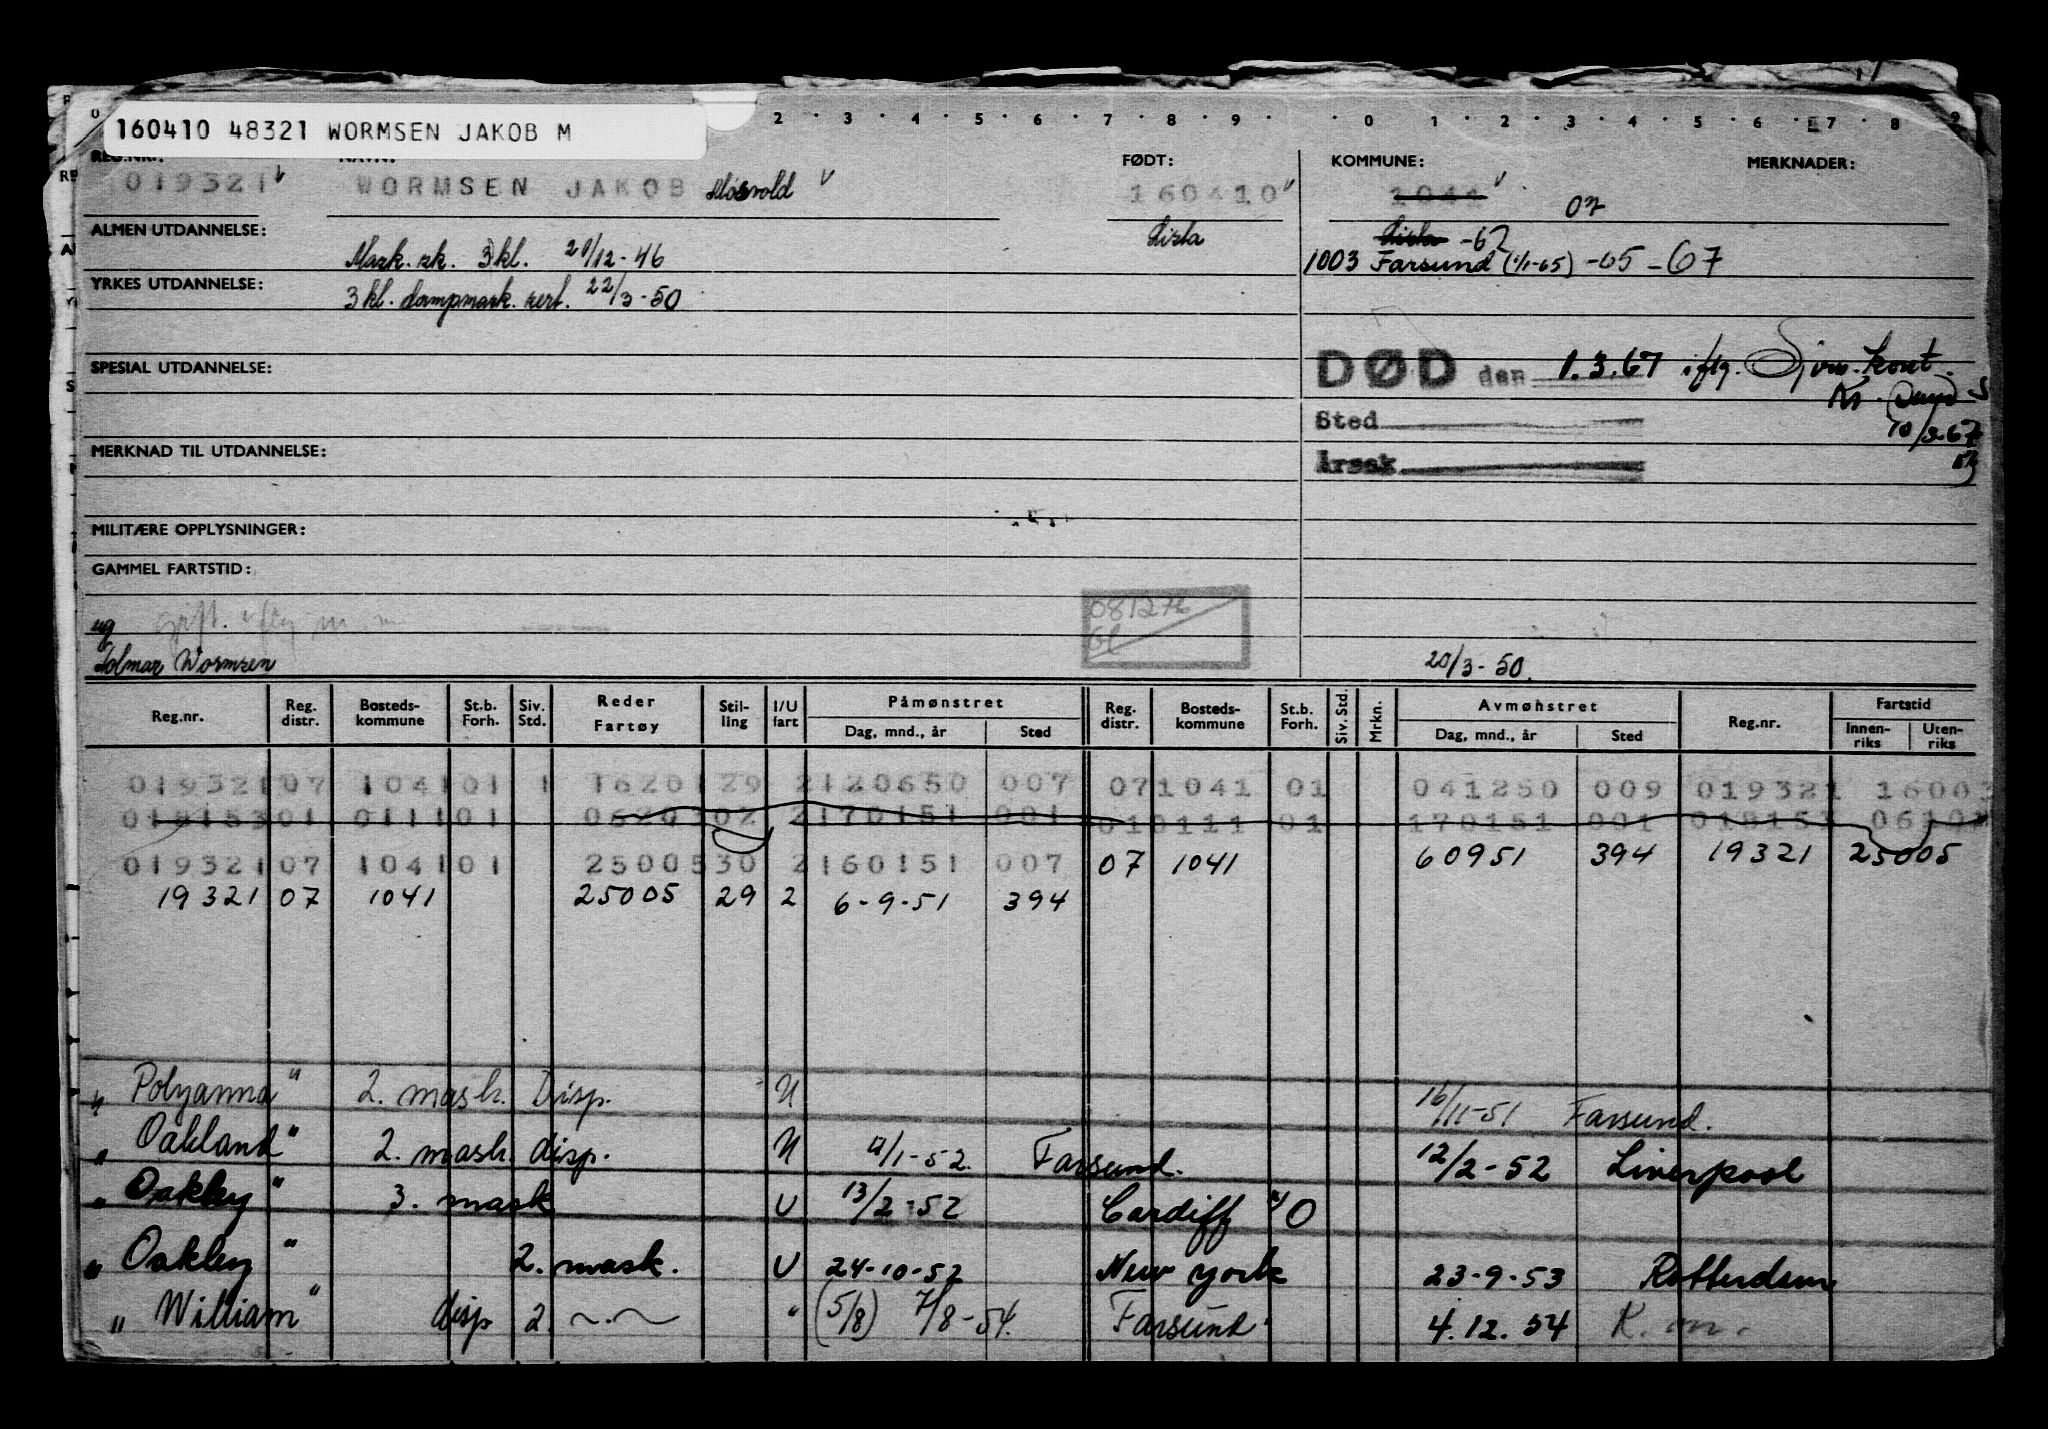 160410 48321 WORMSEN JAKOB M
2 3 4 5 6 7 8 9 0 1 2 3 4 5 6 7 8 9
FØDT: KOMMUNE: MERKNADER:
019321 WORMSEN JAKOB Mosvold 160410 1041 07
ALMEN UTDANNELSE: Lista Lista -62
Mask. sk. 3 kl. 21/12-46 1003 Farsund (1/1-65) -65-67
YRKES UTDANNELSE: 3 kl. dampmask. sert. 22/3-50
SPESIAL UTDANNELSE: DØD den 1.3.67 iflg.
Sted
MERKNAD TIL UTDANNELSE: Årsak
MILITÆRE OPPLYSNINGER:
GAMMEL FARTSTID:
Wormsen 20/3-50.
Reg.nr. Reg. distr. Bosteds-kommune St.b. Forh. Siv. Std. Reder Fartøy Stil-ling I/U fart Påmønstret Dag, mnd., år Sted Reg. distr. Bosteds-kommune St.b. Forh. Siv. Std. Mrkn. Avmønstret Dag, mnd., år Sted Reg.nr. Fartstid Innen-riks Uten-riks
019321 07 1041 01 1 1620 129 2120650 007 07 1041 01 041250 009 019321 1600
018153 01 0111 01 0620302 2170151 001 01 0111 01 170151 001 018153
019321 07 1041 01 2500530 2160151 007 07 1041 60951 394 19321 25005
19321 07 1041 25005 29 2 6-9-51 394
" Polyanna " 2. mask. Disp. U 16/11-51 Farsund.
" Oakland " 2. mask. disp. U 4/1-52. Farsund. 12/2-52 Liverpool
" Oakley " 3. mask U 13/2-52 Cardiff "/O
" Oakley " 2. mask. U 24-10-52 New York 23-9-53 Rotterdam
" William " disp 2. " (5/8) 7/8-54. Farsund 4.12.54 K. m.